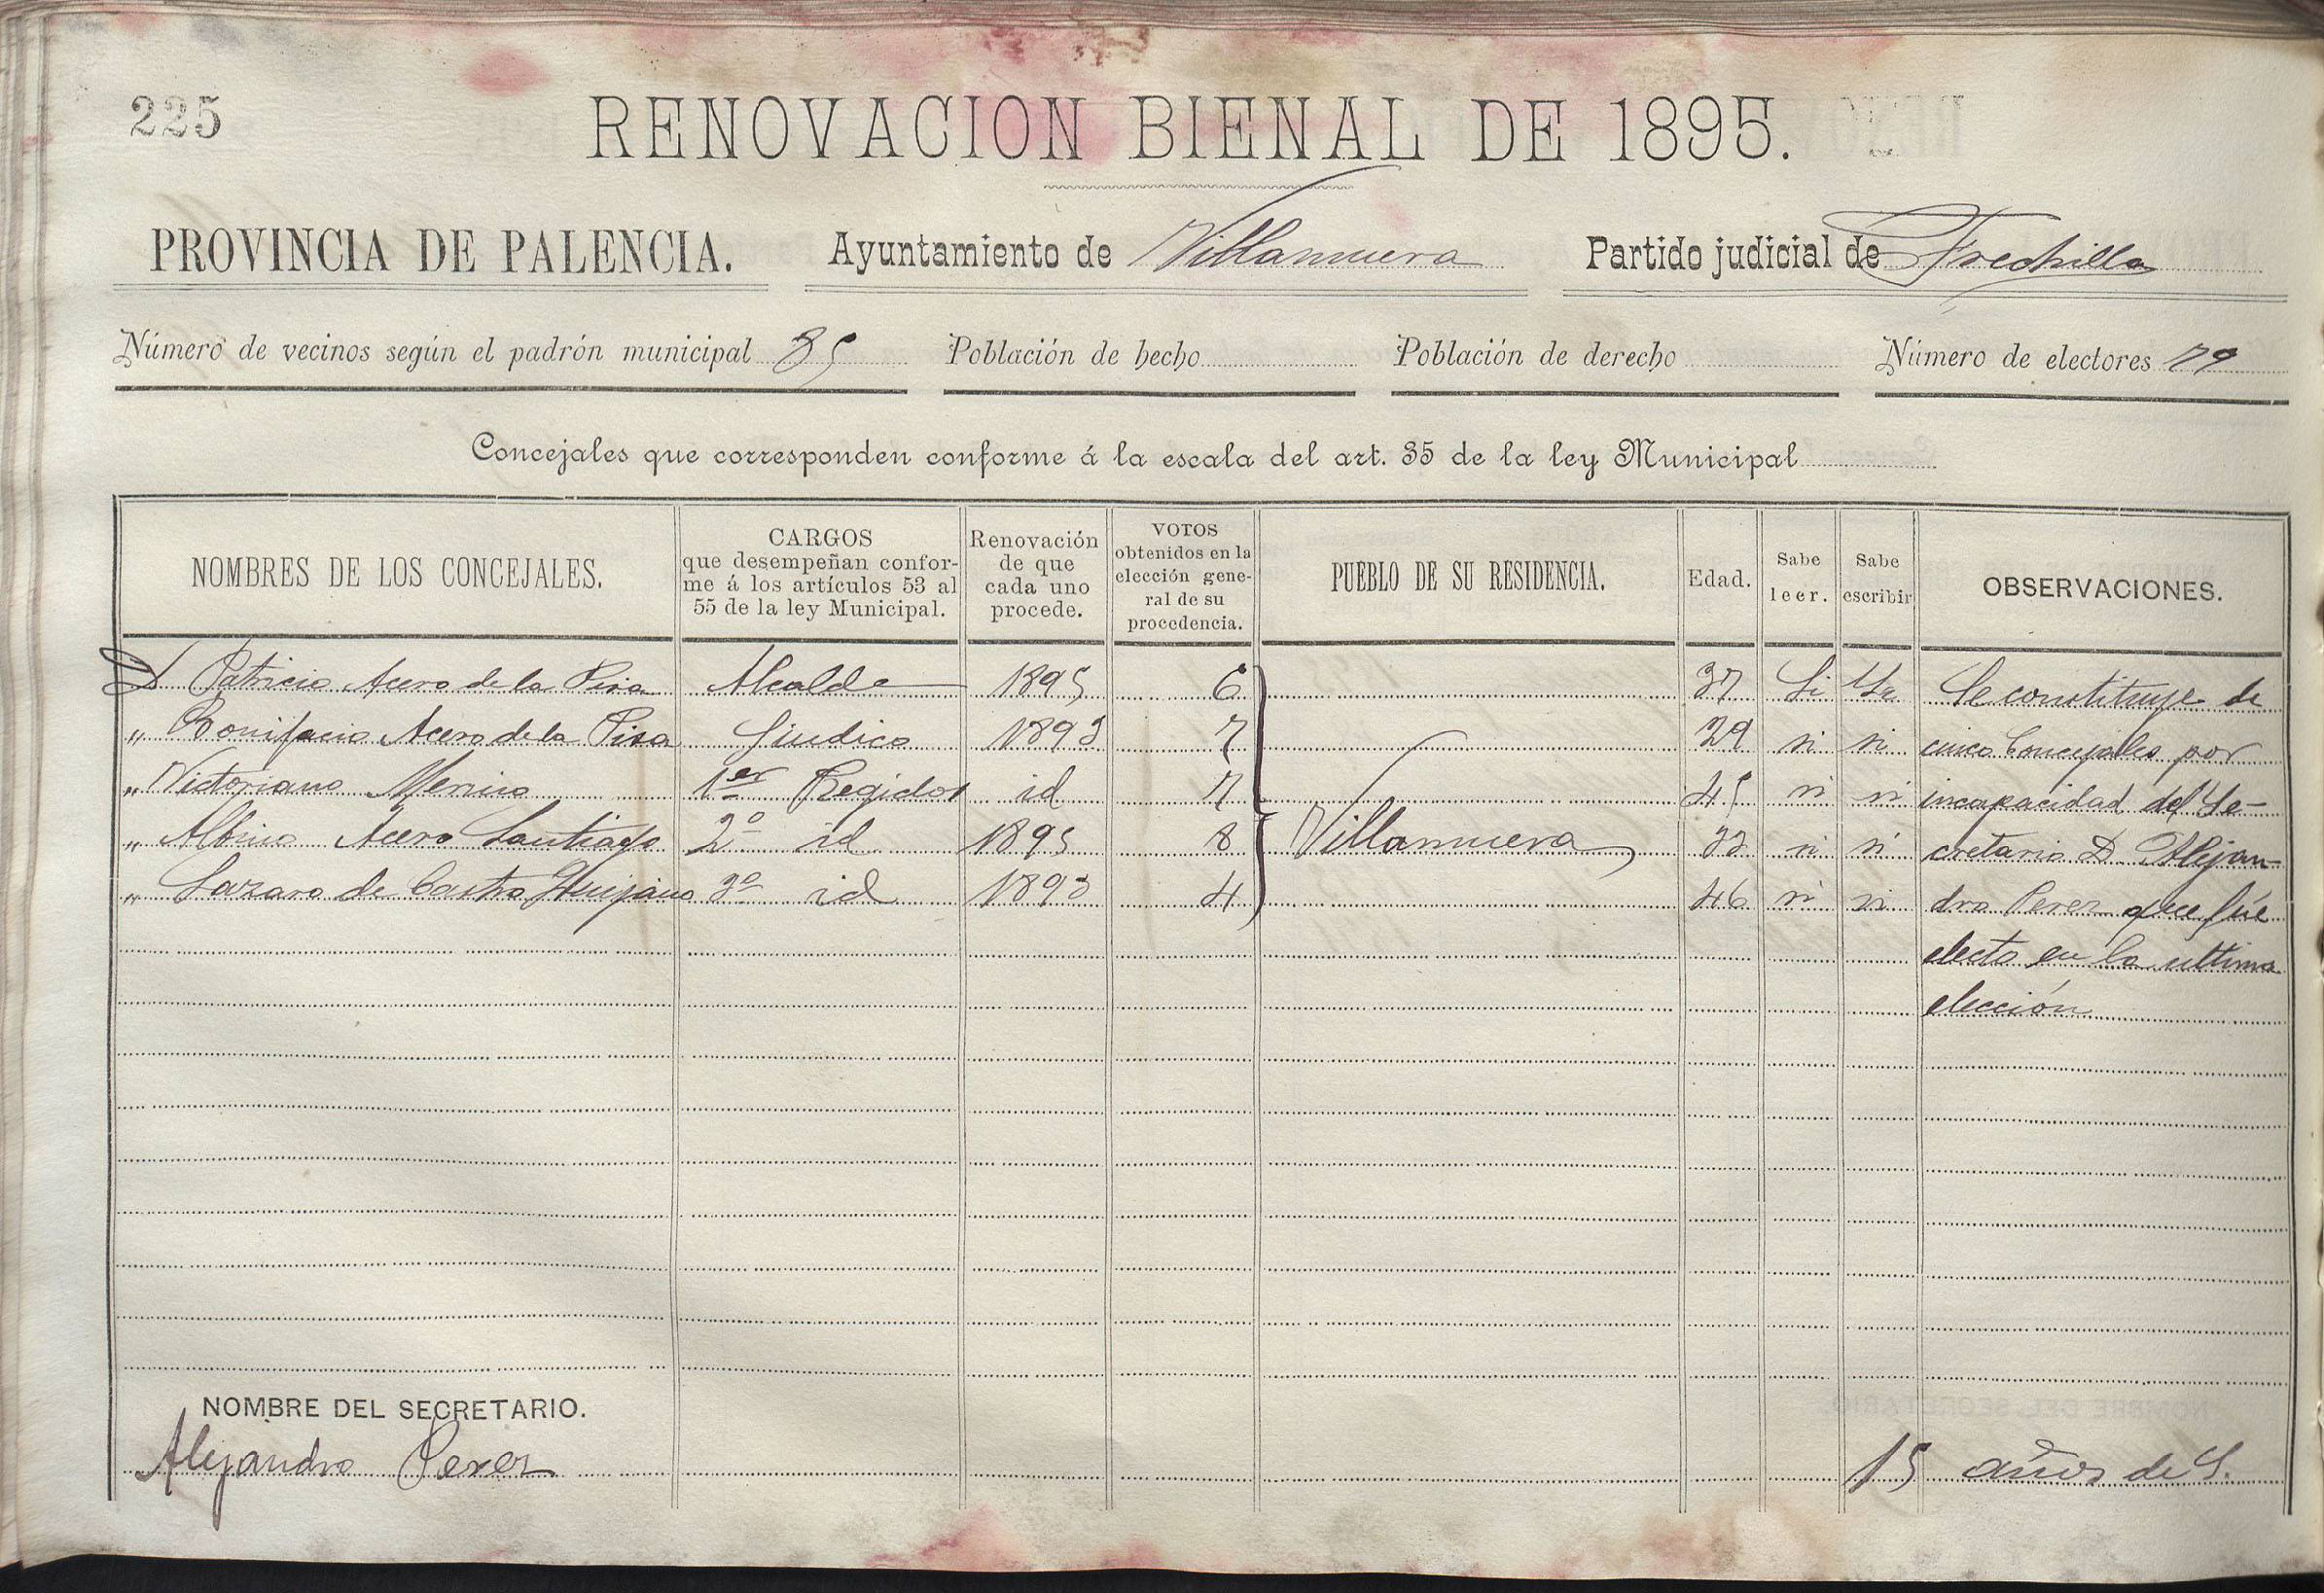 225
RENOVACION BIENAL DE 1895.
PROVINCIA DE PALENCIA. Ayuntamiento de Villanueva Partido judicial de Frechilla
Número de vecinos según el padrón municipal 85 Población de hecho Población de derecho Número de electores 79
Concejales que corresponden conforme á la escala del art. 35 de la ley Municipal
NOMBRES DE LOS CONCEJALES.
CARGOS
que desempeñan confor-
me á los artículos 53 al
55 de la ley Municipal.
Renovación
de que
cada uno
procede.
VOTOS
obtenidos en la
elección gene-
ral de su
procedencia.
PUEBLO DE SU RESIDENCIA.
Edad.
Sabe
leer.
Sabe
escribir
OBSERVACIONES.
D. Patricio Acero de la Pisa Alcalde 1895 6 37 Si Se constituye de
„ Bonifacio Acero de la Pisa Sindico 1893 7 29 si si cinco Concejales por
„ Victoriano Merino 1er Regidor id 7 45 si si incapacidad del Se-
„ Albino Acero Santiago 2º id 1895 8 Villanueva 33 si si cretario D Alejan-
„ Lazaro de Castro Guijano 3º id 1893 4 46 si si dro Perez que fúe
electo en la ultima
elección
NOMBRE DEL SECRETARIO.
Alejandro Perez 15 años de S.